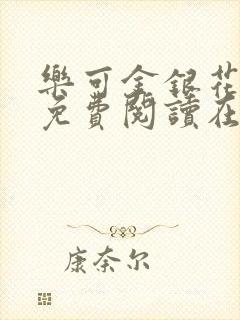 樂可金銀花
免費閱讀在
康奈尔